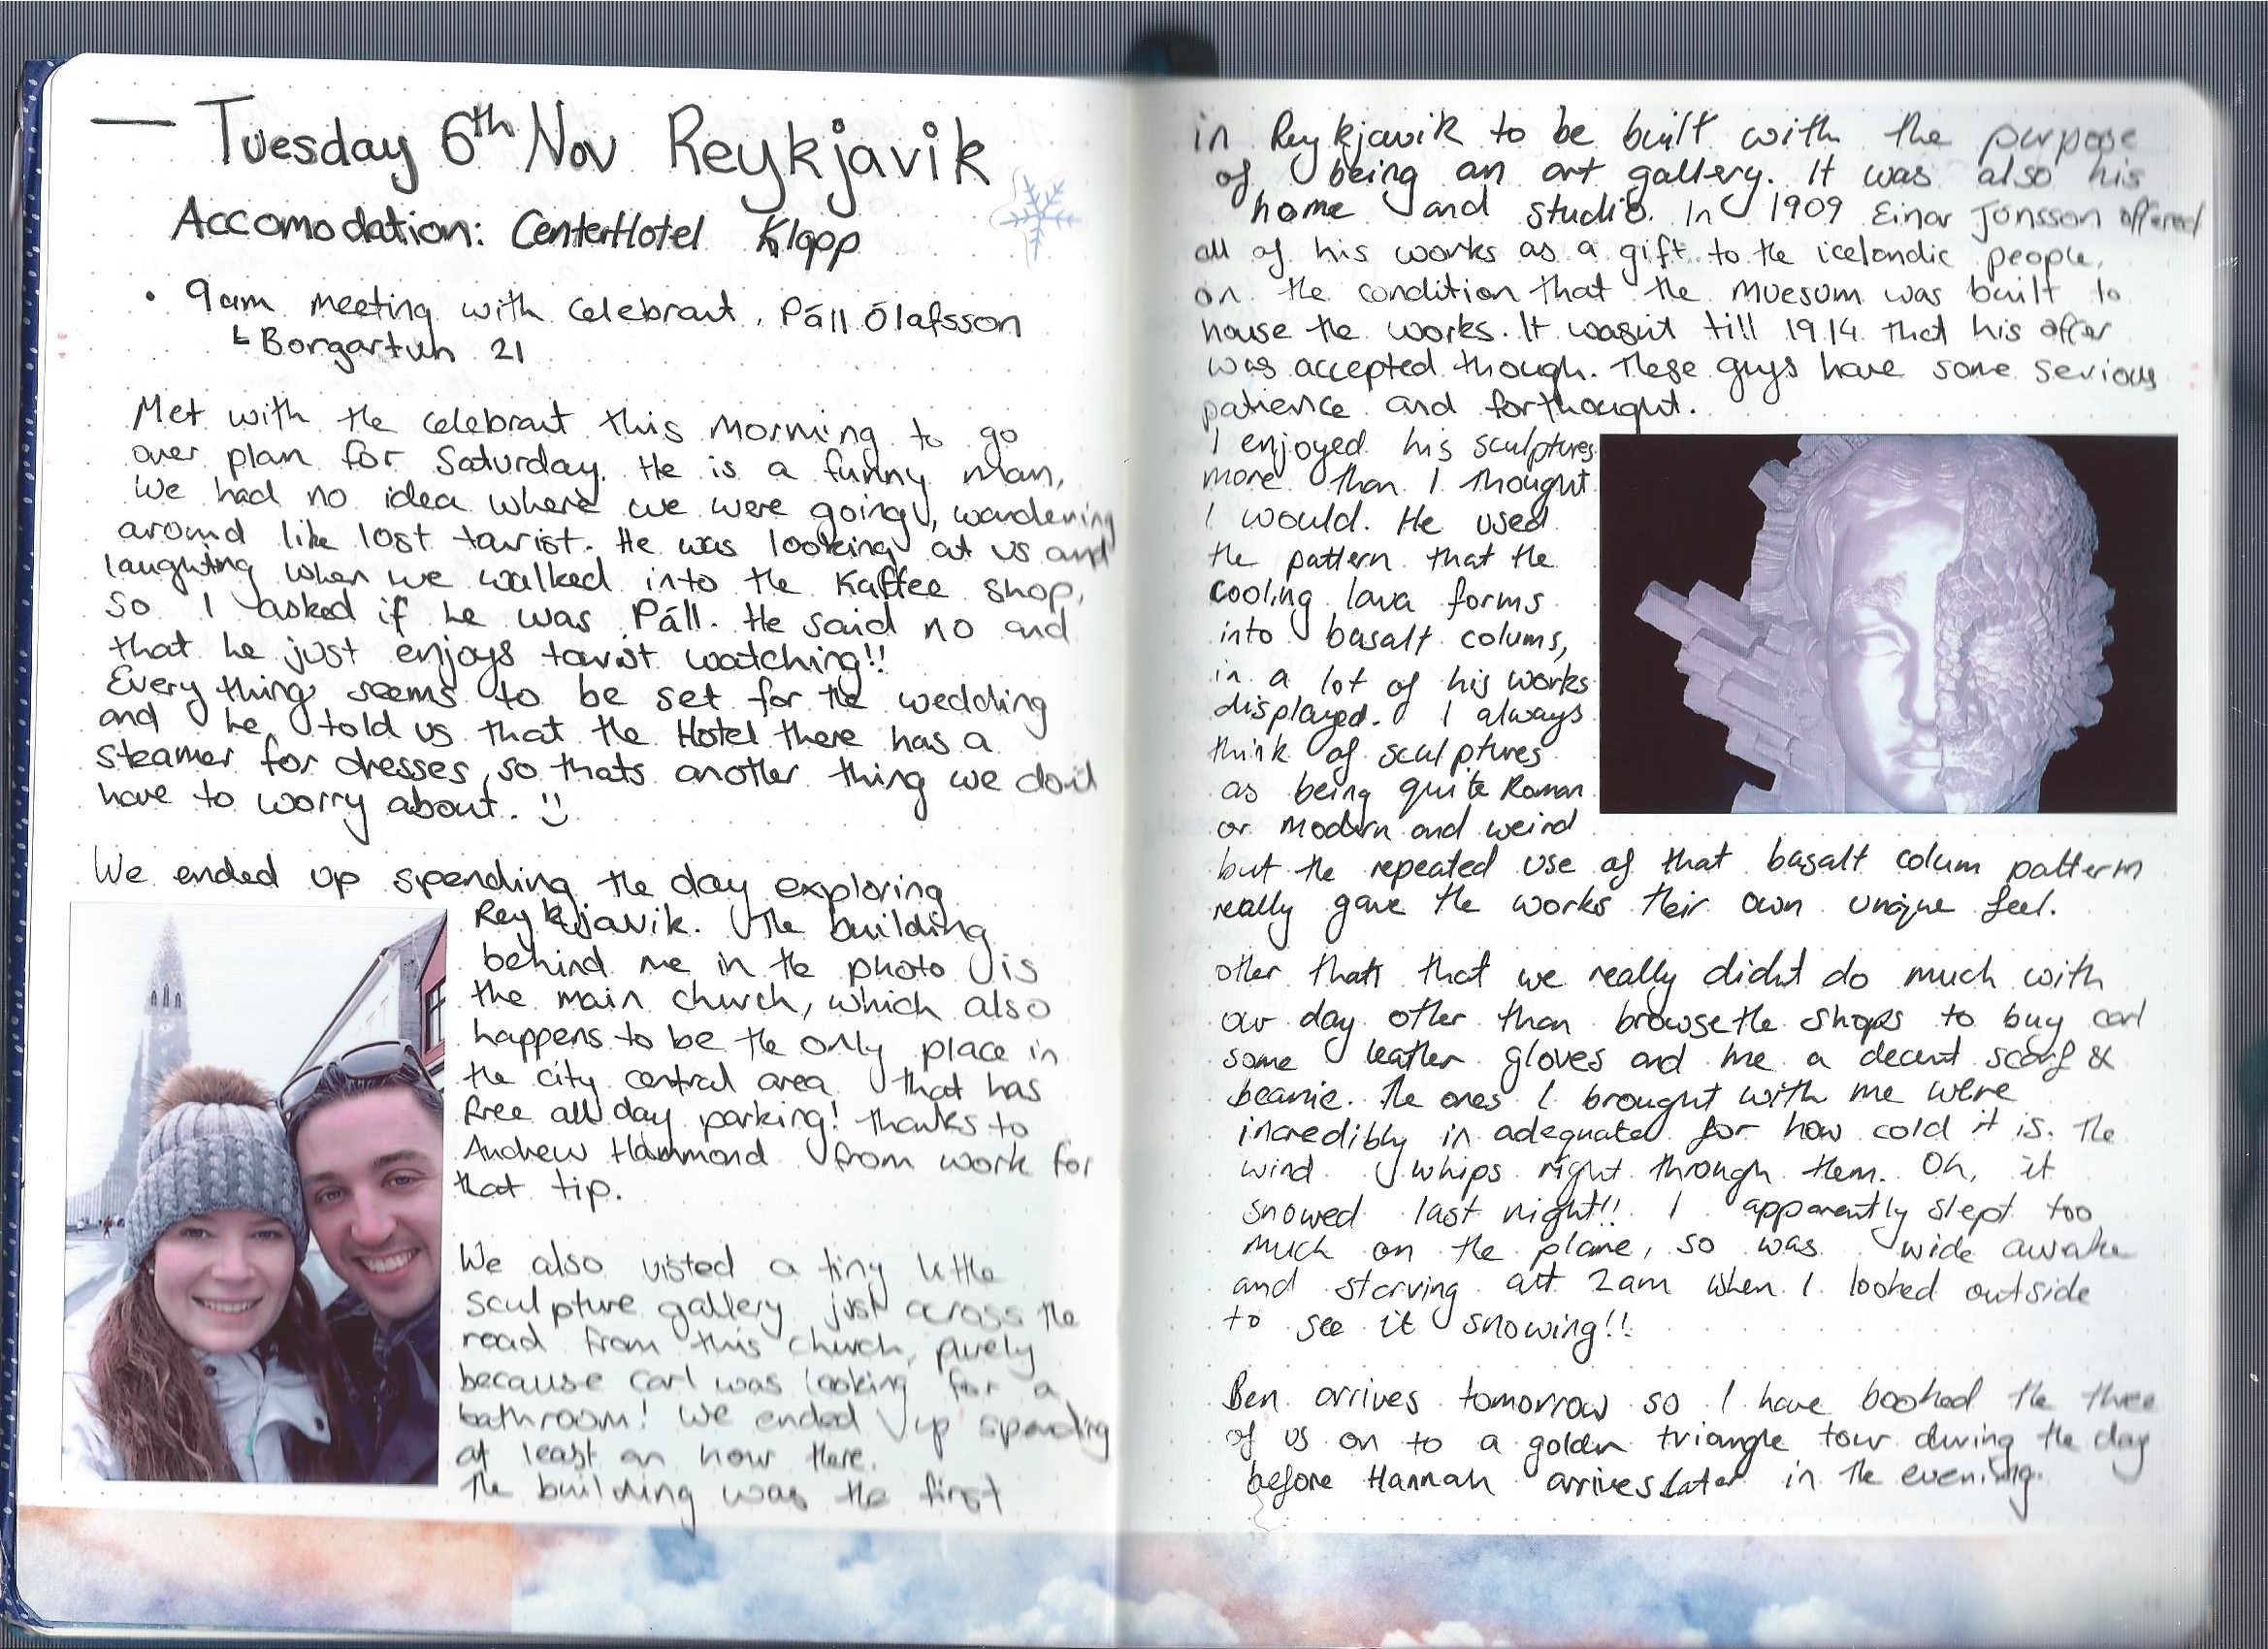 — Tuesday 6th Nov Reykjavik
Accomodation: CenterHotel Klapp
• 9am meeting with Celebrant, Páll Ólafsson
↳ Borgartun 21
Met with the celebrant this morning to go
over plan for Saturday. He is a funny man,
we had no idea where we were going, wandering
around like lost tourist. He was looking at us and
laughing when we walked into the Kaffee shop,
so I asked if he was Páll. He said no and
that he just enjoys tourist watching!!
Everything seems to be set for the wedding
and he told us that the Hotel there has a
steamer for dresses, so thats another thing we don't
have to worry about. :)
We ended up spending the day exploring
Reykjavik. The building
behind me in the photo is
the main church, which also
happens to be the only place in
the city central area that has
free all day parking! thanks to
Andrew Hammond from work for
that tip.
We also visted a tiny little
sculpture gallery just across the
road from this church, purely
because Carl was looking for a
bathroom! We ended up spending
at least an hour there.
The building was the first
in Reykjavik to be built with the purpose
of being an art gallery. It was also his
home and studio. In 1909 Einar Jónsson offered
all of his works as a gift to the icelandic people,
on the condition that the muesum was built to
house the works. It wasn't till 1914 that his offer
was accepted though. These guys have some serious
patience and forthought.
I enjoyed his sculptures
more than I thought
I would. He used
the pattern that the
cooling lava forms
into basalt colums,
in a lot of his works
displayed. I always
think of sculptures
as being quite Roman
or modern and weird
but the repeated use of that basalt colum pattern
really gave the works their own unique feel.
other that that we really didn't do much with
our day other than browse the shops to buy carl
some leather gloves and me a decent scarf &
beanie. The ones I brought with me were
incredibly in adequate for how cold it is. The
wind whips right through them. Oh, it
snowed last night!! I apparently slept too
much on the plane, so was wide awake
and starving at 2am when I looked outside
to see it snowing!!
Ben arrives tomorrow so I have booked the three
of us on to a golden triangle tour during the day
before Hannah arrives later in the evening.